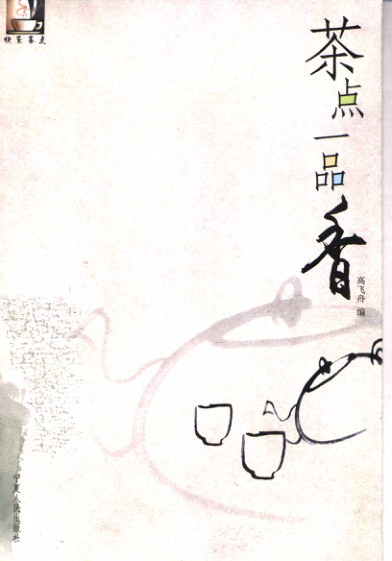 快乐茶点
茶点一品香
高飞舟 编
宁夏人民出版社